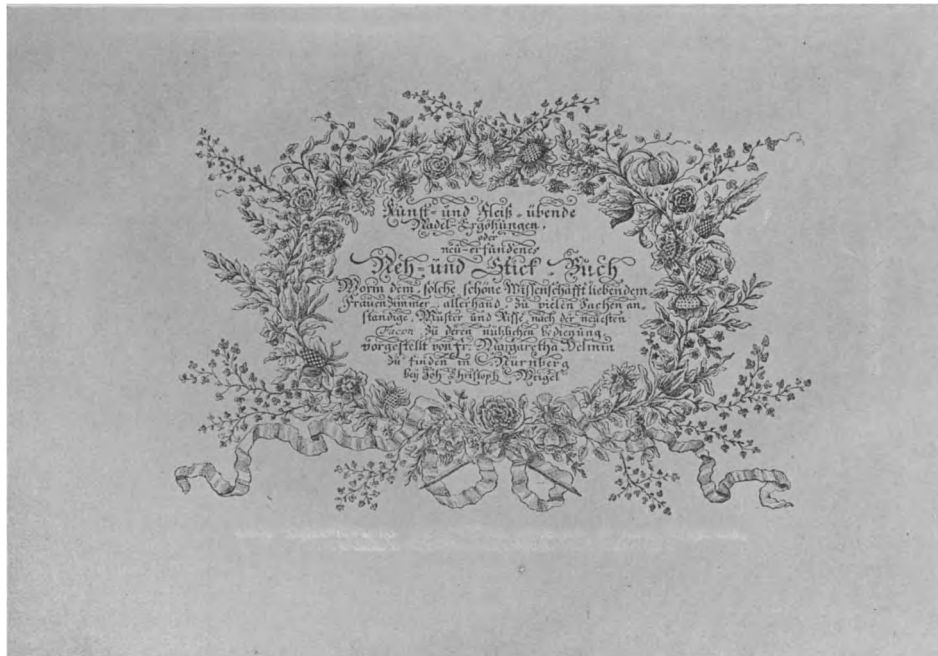 Kunst- und Fleiß-übende
Nadel-Ergötzungen,
oder
neu-erfundenes
Neh- und Stick-Buch
Worin dem, solche schöne Wissenschafft liebendem
Frauenzimmer, allerhand, zu vielen Sachen an,
ständige, Muster und Risse, nach der neuesten
Facon, zu deren nützlichen bedienung,
vorgestellt von Fr. Margaretha Helmin
zu finden in Nürnberg
bey Joh Christoph Weigel